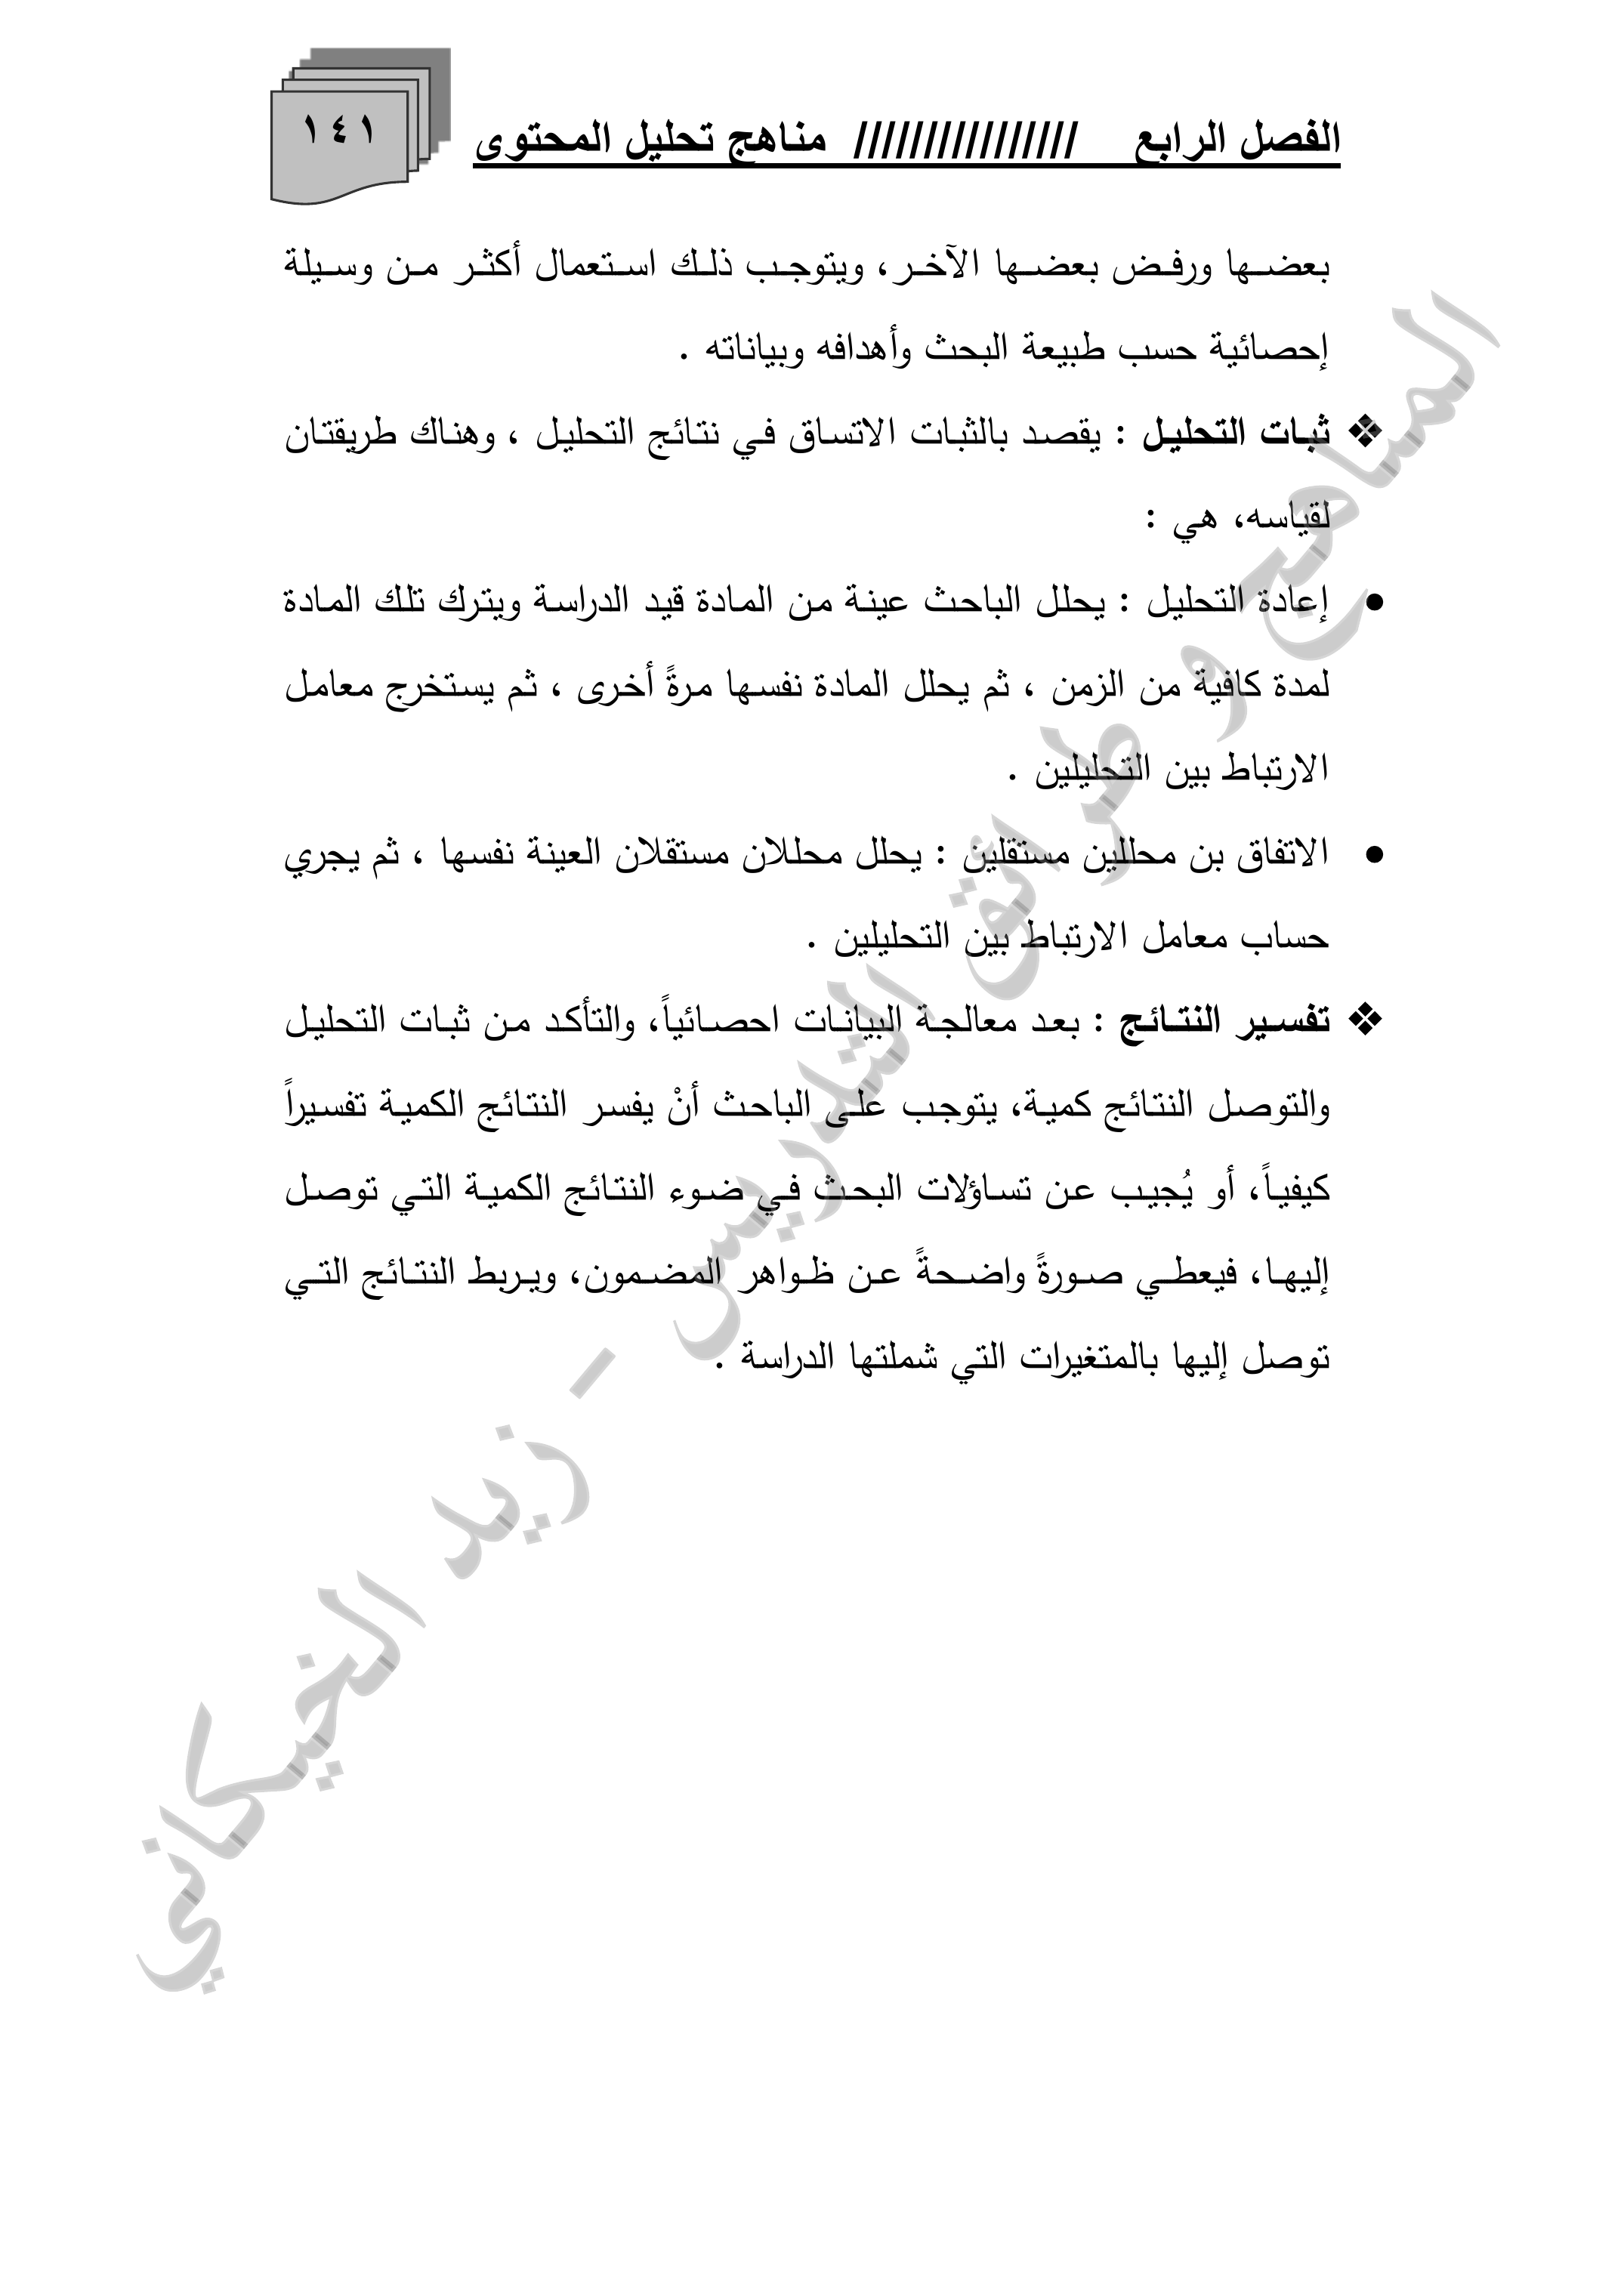 الفصل الرابع //////////////// مناهج تحليل المحتوى
١٤١
بعضها ورفض بعضها الآخر، ويتوجب ذلك استعمال أكثر من وسيلة
إحصائية حسب طبيعة البحث وأهدافه وبياناته .
❖ ثبات التحليل : يقصد بالثبات الاتساق في نتائج التحليل ، وهناك طريقتان
لقياسه، هي :
• إعادة التحليل : يحلل الباحث عينة من المادة قيد الدراسة ويترك تلك المادة
لمدة كافية من الزمن ، ثم يحلل المادة نفسها مرةً أخرى ، ثم يستخرج معامل
الارتباط بين التحليلين .
• الاتفاق بن محللين مستقلين : يحلل محللان مستقلان العينة نفسها ، ثم يجري
حساب معامل الارتباط بين التحليلين .
❖ تفسير النتائج : بعد معالجة البيانات احصائياً، والتأكد من ثبات التحليل
والتوصل النتائج كمية، يتوجب على الباحث أنْ يفسر النتائج الكمية تفسيراً
كيفياً، أو يُجيب عن تساؤلات البحث في ضوء النتائج الكمية التي توصل
إليها، فيعطي صورةً واضحةً عن ظواهر المضمون، ويربط النتائج التي
توصل إليها بالمتغيرات التي شملتها الدراسة .
المناهج و طرائق التدريس - زيد الخيكاني